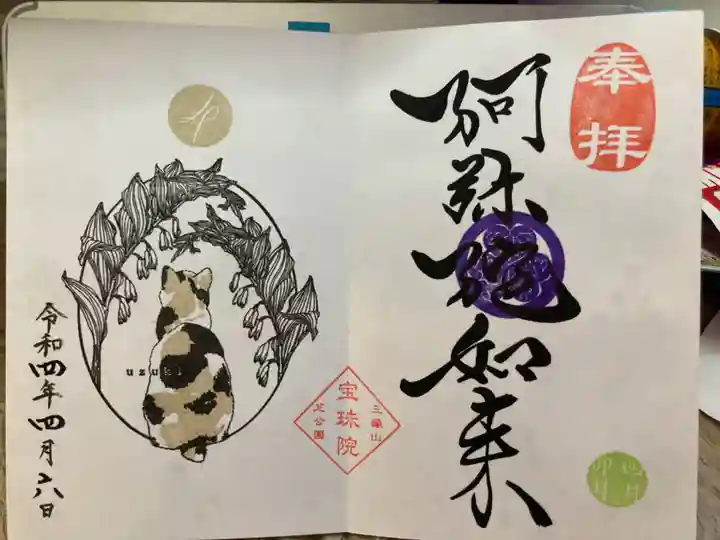 奉拝
阿弥陀如来
四月
卯月
三縁山
宝珠院
芝公園
uzuki
令和四年四月六日